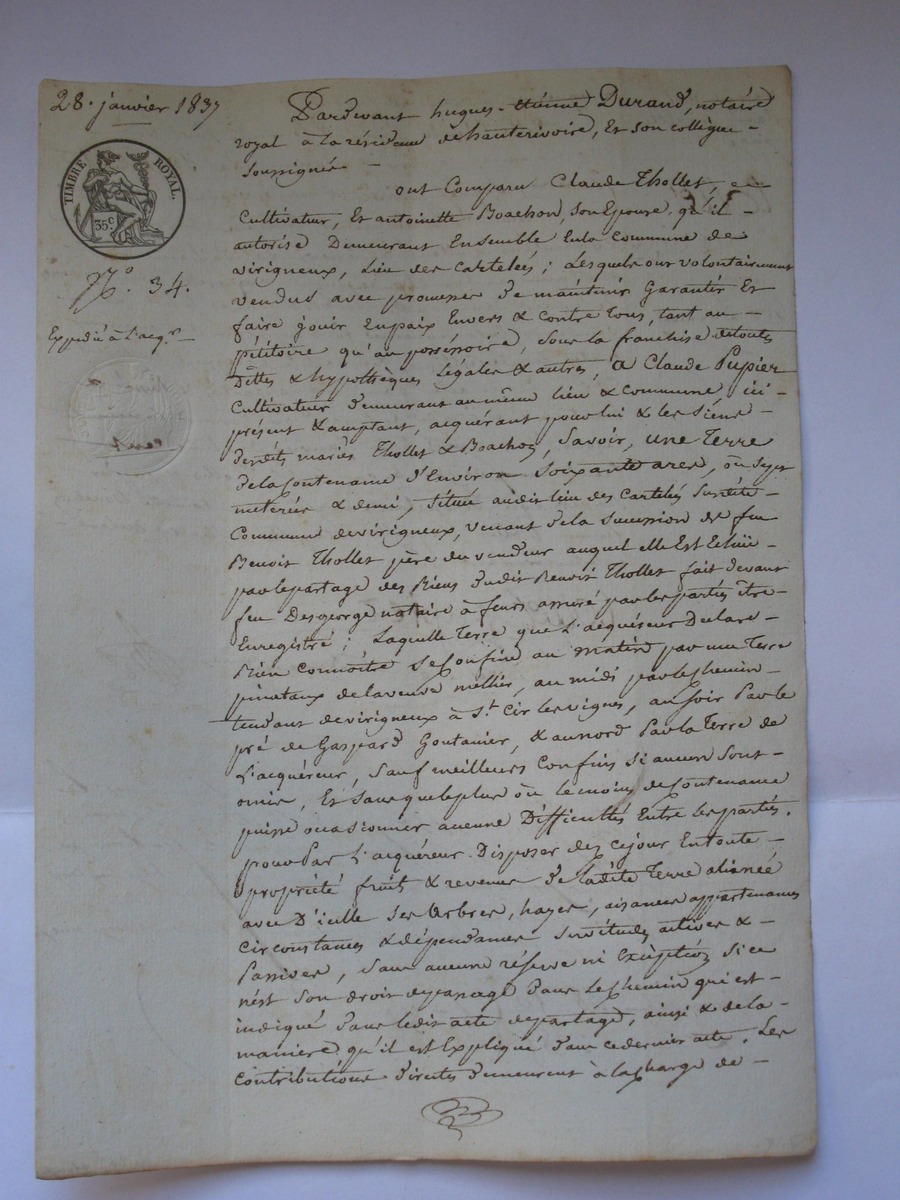 28. janvier 1837
TIMBRE ROYAL.
35 c
N.o 34.
Expédié à L'acq.r
Pardevant hugues-étienne Durand, notaire
royal à la résidence de hauterivoire, Et son collègue
soussignés
ont Comparu Claude Thollet,
Cultivateur, Et antoinette Boachon, son Epouse qu'il
autorise Demeurant Ensemble En la Commune de
virigneux, Lieu des Cartelés ; Lesquels ont volontairement
vendus avec promesse de maintenir Garantir Et
faire jouir En paix Envers & contre tous, tant au
pétitoire qu'au posséssoire, sous la franchise de toutes
Dêttes & hypothèques Légales & autres, à Claude Pupier
Cultivateur demeurant au même lieu & Commune, ici
présent & acceptant, acquérant pour lui & les siens
desdits mariés Thollet & Boachon, Savoir, une Terre
de la Contenance d'Environ Soixante ares, ou sept
meterées & demi, située audit lieu des Cartelés susdite
Commune de virigneux, venant de la succession de feu
Benoit Thollet père du vendeur auquel elle Est Echüe
par le partage des Biens dudit Benoit Thollet fait devant
feu Desgeorge notaire à feurs assuré par les parties être
Enregistré ; Laquelle Terre que L'acquéreur Déclare
Bien Connoître se Confine au matin par une Terre
pinataux de la veuve mellier, au midi par le Chemin
tendant de virigneux à St. Cir les vignes, au soir Par le
pré de Gaspard Goutanier, & au nord Par la Terre de
L'acquéreur, sauf meilleurs Confins si aucun sont
omis, Et sans que le plus ou le moins de Contenance
puisse occasionner aucune Difficultés Entre les parties.
pour Par L'acquéreur Disposer dez cejour En toute
propriété fruit & revenus de ladite Terre alianée
avec D'icelle ses Arbres, hayes, aisances appartenances
Circonstances & dépendances servitudes actives &
Passives, sans aucune réserve ni Exception si ce
n'ést son droit de passage Dans Le Chemin qui est
indiqué dans ledit acte de partage, ainsi & de la
maniere qu'il est Expliqué dans ce dernier acte. Les
Contributions directes demeurent à la Charge de